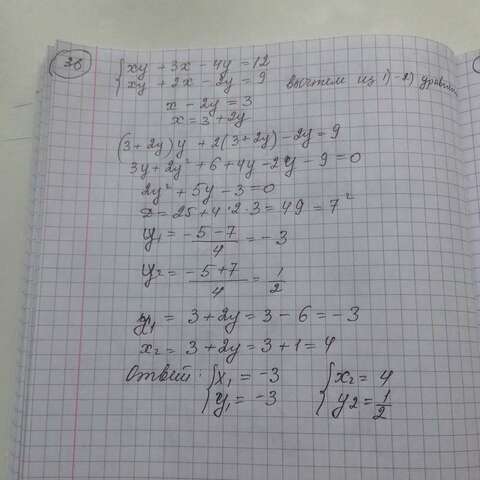 3б
{ xy + 3x - 4y = 12
{ xy + 2x - 2y = 9 вычтем из 1) - 2)
x - 2y = 3
x = 3 + 2y
(3 + 2y) y + 2(3 + 2y) - 2y = 9
3y + 2y² + 6 + 4y - 2y - 9 = 0
2y² + 5y - 3 = 0
D = 25 + 4 * 2 * 3 = 49 = 7²
y₁ = (-5 - 7)/4 = -3
y₂ = (-5 + 7)/4 = 1/2
x₁ = 3 + 2y = 3 - 6 = -3
x₂ = 3 + 2y = 3 + 1 = 4
Ответ: { x₁ = -3 { x₂ = 4
{ y₁ = -3 { y₂ = 1/2